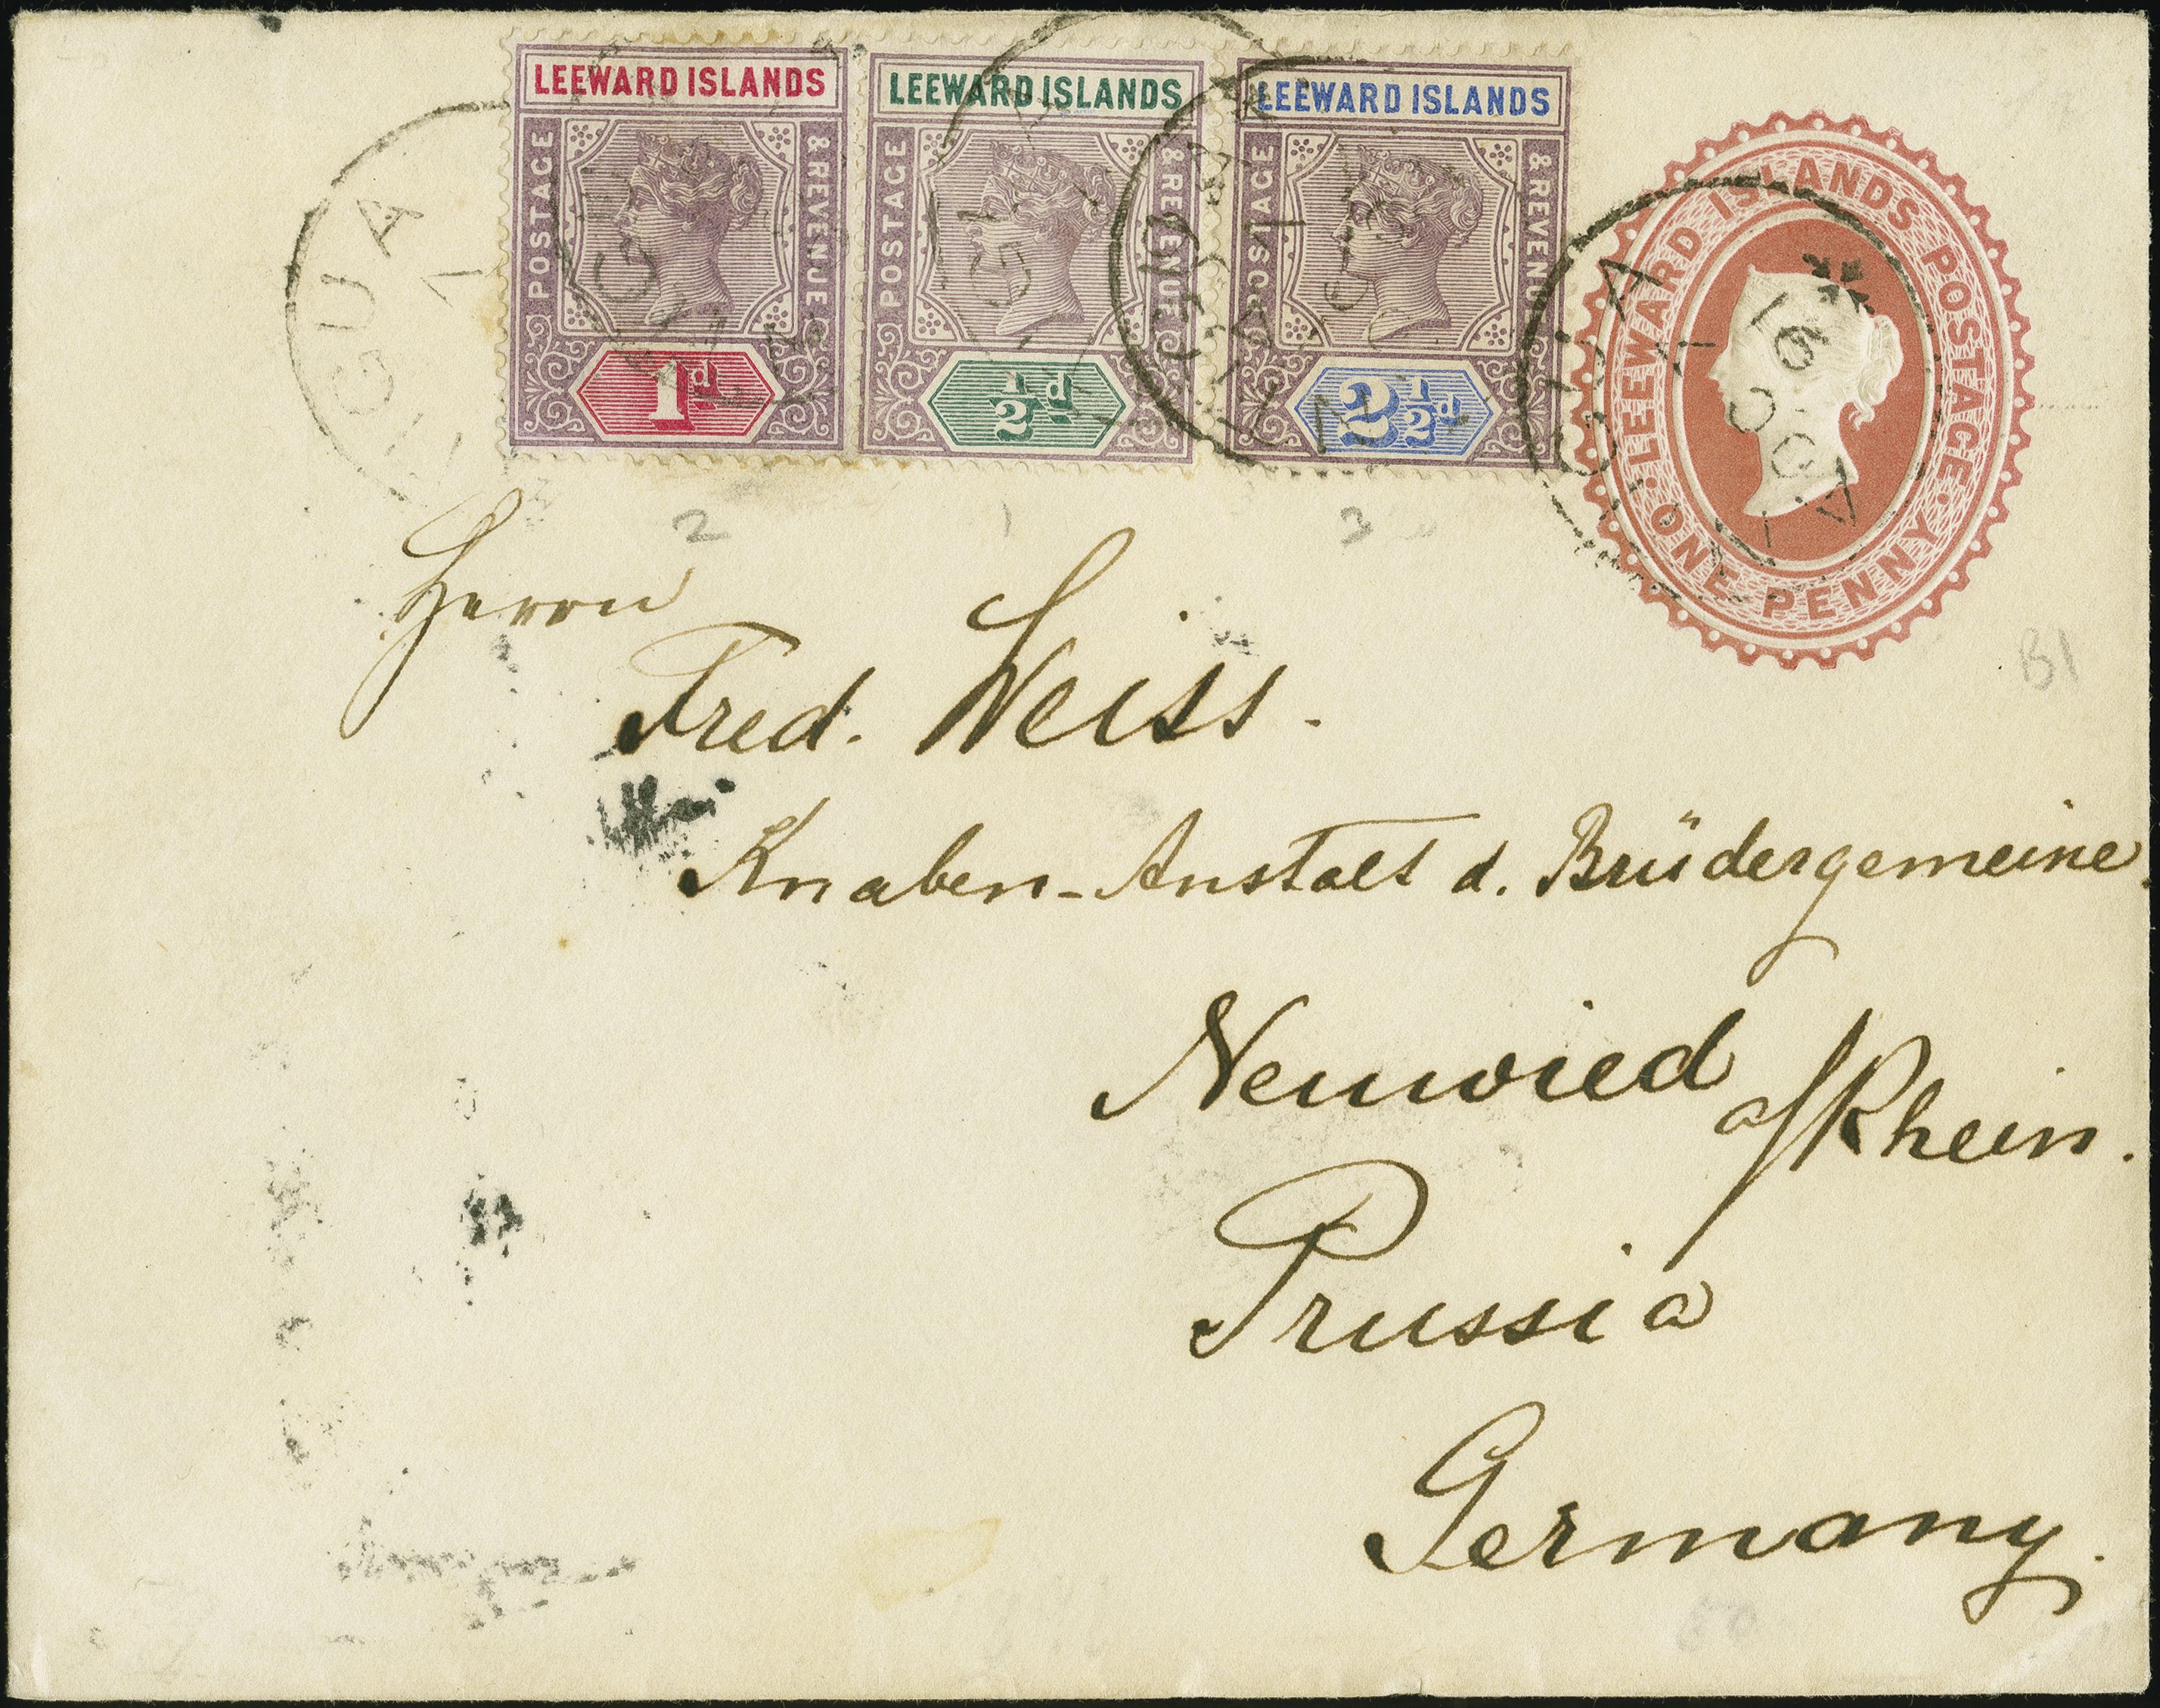 LEEWARD ISLANDS
POSTAGE
& REVENUE
1d
LEEWARD ISLANDS
POSTAGE
& REVENUE
½d
LEEWARD ISLANDS
POSTAGE
& REVENUE
2½d
LEEWARD ISLANDS POSTAGE
ONE PENNY
A
16
OC
91
2
1
3
B1
Herrn
Fred. Weiss.
Knaben-Anstalt d. Brüdergemeine.
Neuwied a/Rhein.
Prussia
Germany.